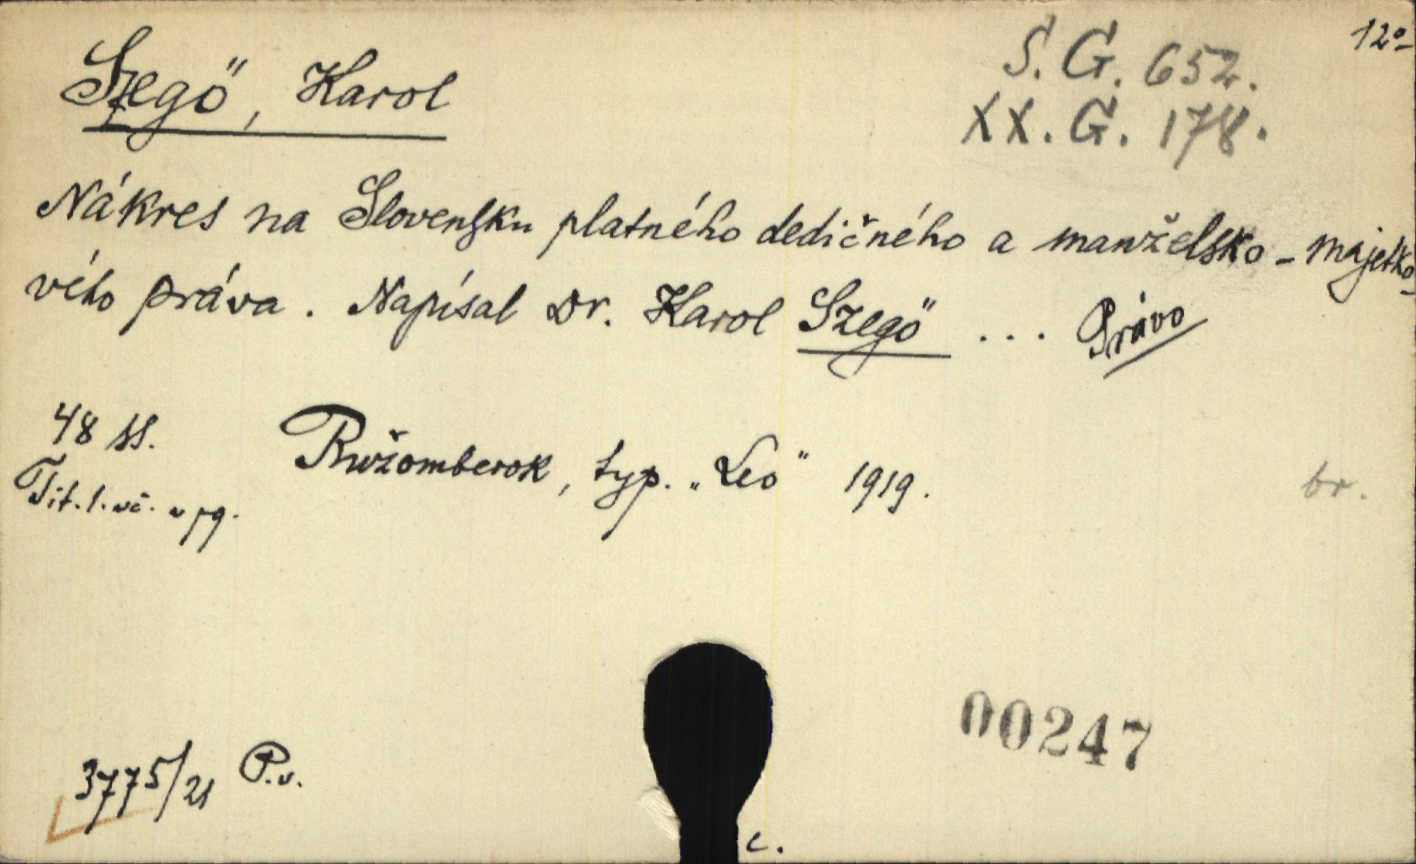 12°
Szegö, Karol
S. G. 652.
XX. G. 178.
Nákres na Slovensku platného dedičného a manželsko-majetko-
vého práva. Napísal Dr. Karol Szegö ... Právo
48 ss.
Ružomberok, typ. „Leo" 1919.
Tit. l. vč. v pg.
br.
00247
3775/21 P.v.
c.